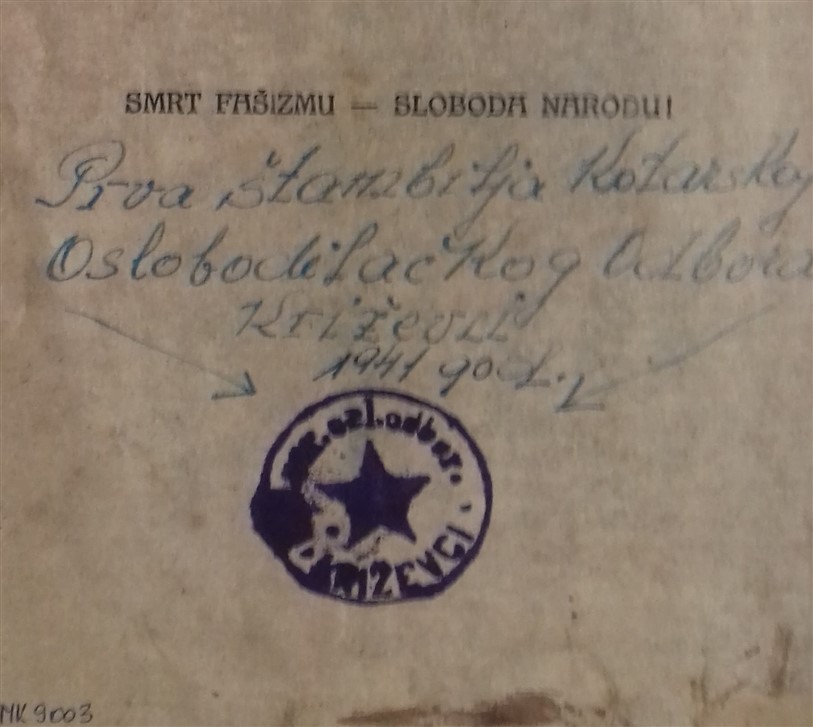 SMRT FAŠIZMU — SLOBODA NARODU!
Prva štambilja Kotarskog
Oslobodilačkog Odbora
Križevci
1941 god.
ozl.odbor.
KRIŽEVCI
MK 9003